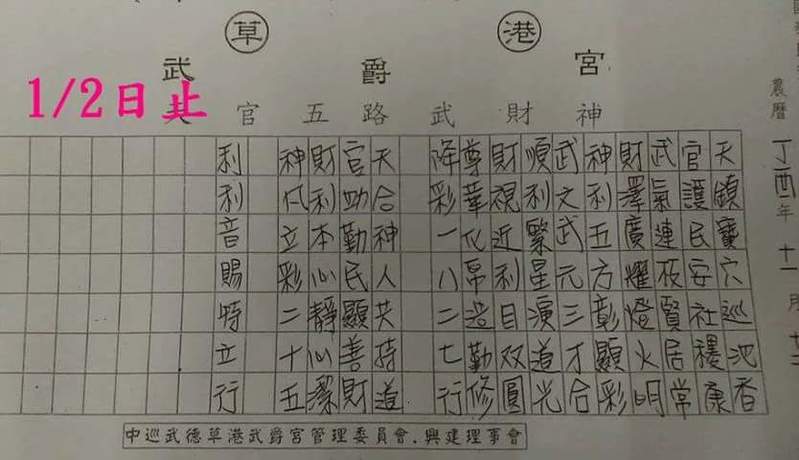 草港
武爵宮
1/2日止
官五路武財神
農曆丁酉年十一月
天鎮寶穴巡池香
官護民安社穩康
武氣連夜賢居常
財澤廣耀燈火明
神利五方彰顯彩
武文武元三才合
順利繁星演道光
財視近利目双圓
尊華化帛造勤修
降彩一八二七行
天合神人共持道
官助勤民顯善財
財利本心靜心潔
神立彩二十五
利利音賜特立行
中巡武德草港武爵宮管理委員會.興建理事會